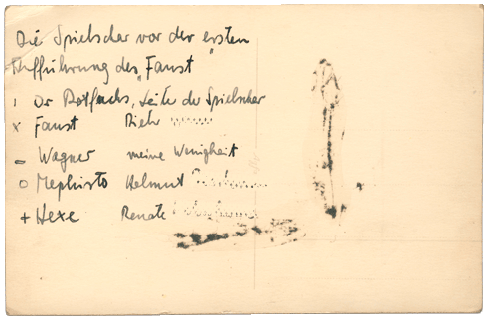 Die Spielschar vor der ersten
Aufführung des „Faust"
ı Dr Rotfuchs, Leite der Spielschar
x Faust Dieter
– Wagner meine Wenigkeit
o Mephisto Helmut
+ Hexe Renate